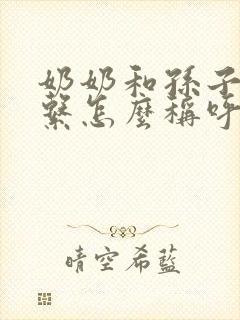 奶奶和孫子
繫怎麼稱呼
晴空希藍